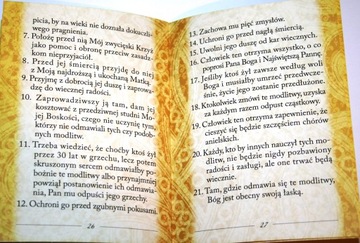 picia, by na wieki nie doznała dokuczli-
wego pragnienia.
7. Położę przed nią Mój zwycięski Krzyż
jako pomoc i obronę przeciw zasadz-
kom nieprzyjaciół.
8. Przed jej śmiercią przyjdę do niej
z Moją najdroższą i ukochaną Matką.
9. Przyjmę z dobrocią jej duszę i zaprowa-
dzę do wiecznej radości.
10. Zaprowadziwszy ją tam, dam jej
kosztować z przedziwnej studni Mo-
jej Boskości, czego nie uczynię tym,
którzy nie odmawiali tych czy podob-
nych modlitw.
11. Trzeba wiedzieć, że choćby ktoś żył
przez 30 lat w grzechu, lecz potem
skruszonym sercem odmawiałby po-
bożnie te modlitwy albo przynajmniej
powziął postanowienie ich odmawia-
nia, Pan mu odpuści jego grzechy.
12. Ochroni go przed zgubnymi pokusami.
26
13. Zachowa mu pięć zmysłów.
14. Uchroni go przed nagłą śmiercią.
15. Uwolni jego duszę od kar wiecznych.
16. Człowiek ten otrzyma wszystko, o co
poprosi Pana Boga i Najświętszą Pannę.
17. Jeśliby ktoś żył zawsze według woli
Boga i musiałby umrzeć przedwcze-
śnie, życie jego zostanie przedłużone.
18. Ktokolwiek zmówi te modlitwy, uzyska
za każdym razem odpust cząstkowy.
19. Człowiek ten otrzyma zapewnienie, że
cieszyć się będzie szczęściem chórów
anielskich.
20. Każdy, kto by innych nauczył tych mo-
dlitw, nie będzie nigdy pozbawiony
radości i zasługi, ale one trwać będą
wiecznie.
21. Tam, gdzie odmawia się te modlitwy,
Bóg jest obecny swoją łaską.
27